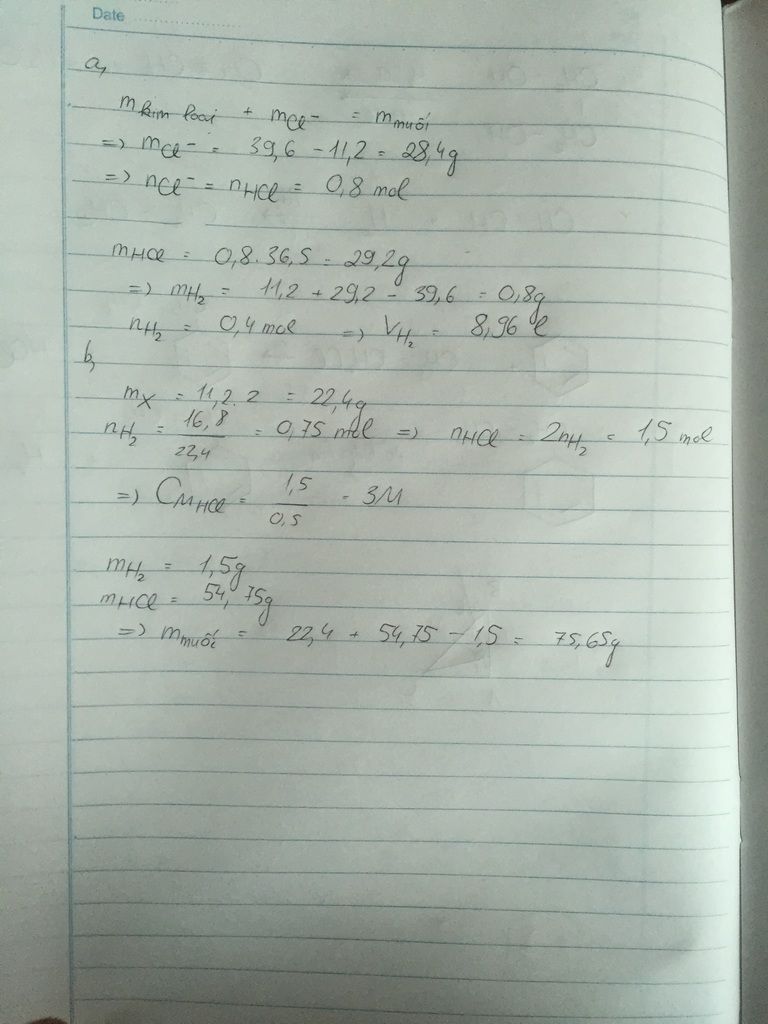 Date
a,
m kim loại + mCl⁻ = m muối
=> mCl⁻ = 39,6 - 11,2 = 28,4g
=> nCl⁻ = nHCl = 0,8 mol
mHCl = 0,8.36,5 = 29,2g
=> mH₂ = 11,2 + 29,2 - 39,6 = 0,8g
nH₂ = 0,4 mol => VH₂ = 8,96 l
b,
mX = 11,2.2 = 22,4g
nH₂ = 16,8/22,4 = 0,75 mol => nHCl = 2nH₂ = 1,5 mol
=> CM HCl = 1,5/0,5 = 3M
mH₂ = 1,5g
mHCl = 54,75g
=> m muối = 22,4 + 54,75 - 1,5 = 75,65g